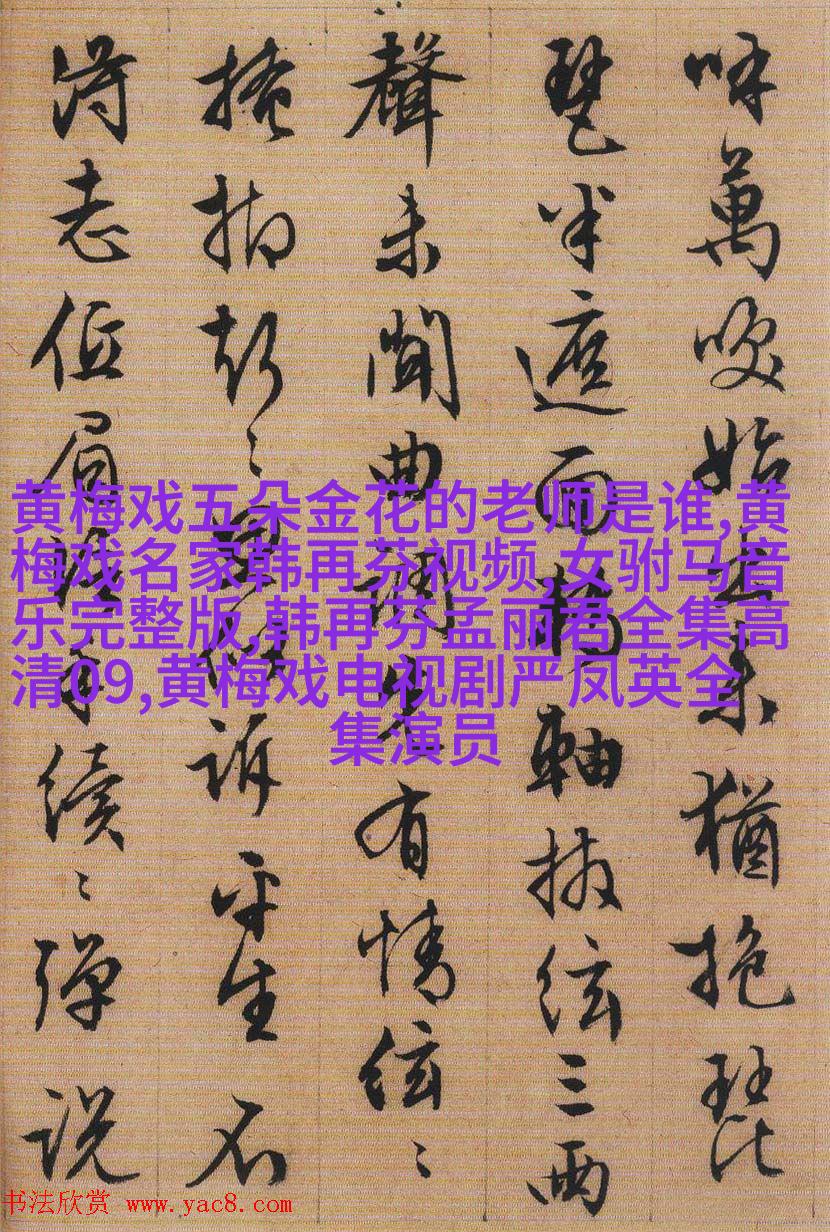 呼萬喚始出來猶抱琵
琶半遮面轉軸撥絃三兩
聲未聞曲調先有情絃〻
掩抑聲〻思似訴平生不
得志低眉信手續〻彈說
黄梅戏五朵金花的老师是谁,黄
梅戏名家韩再芬视频,女驸马音
乐完整版,韩再芬孟丽君全集高
清09,黄梅戏电视剧严凤英全
集演员
书法欣赏 www.yac8.com